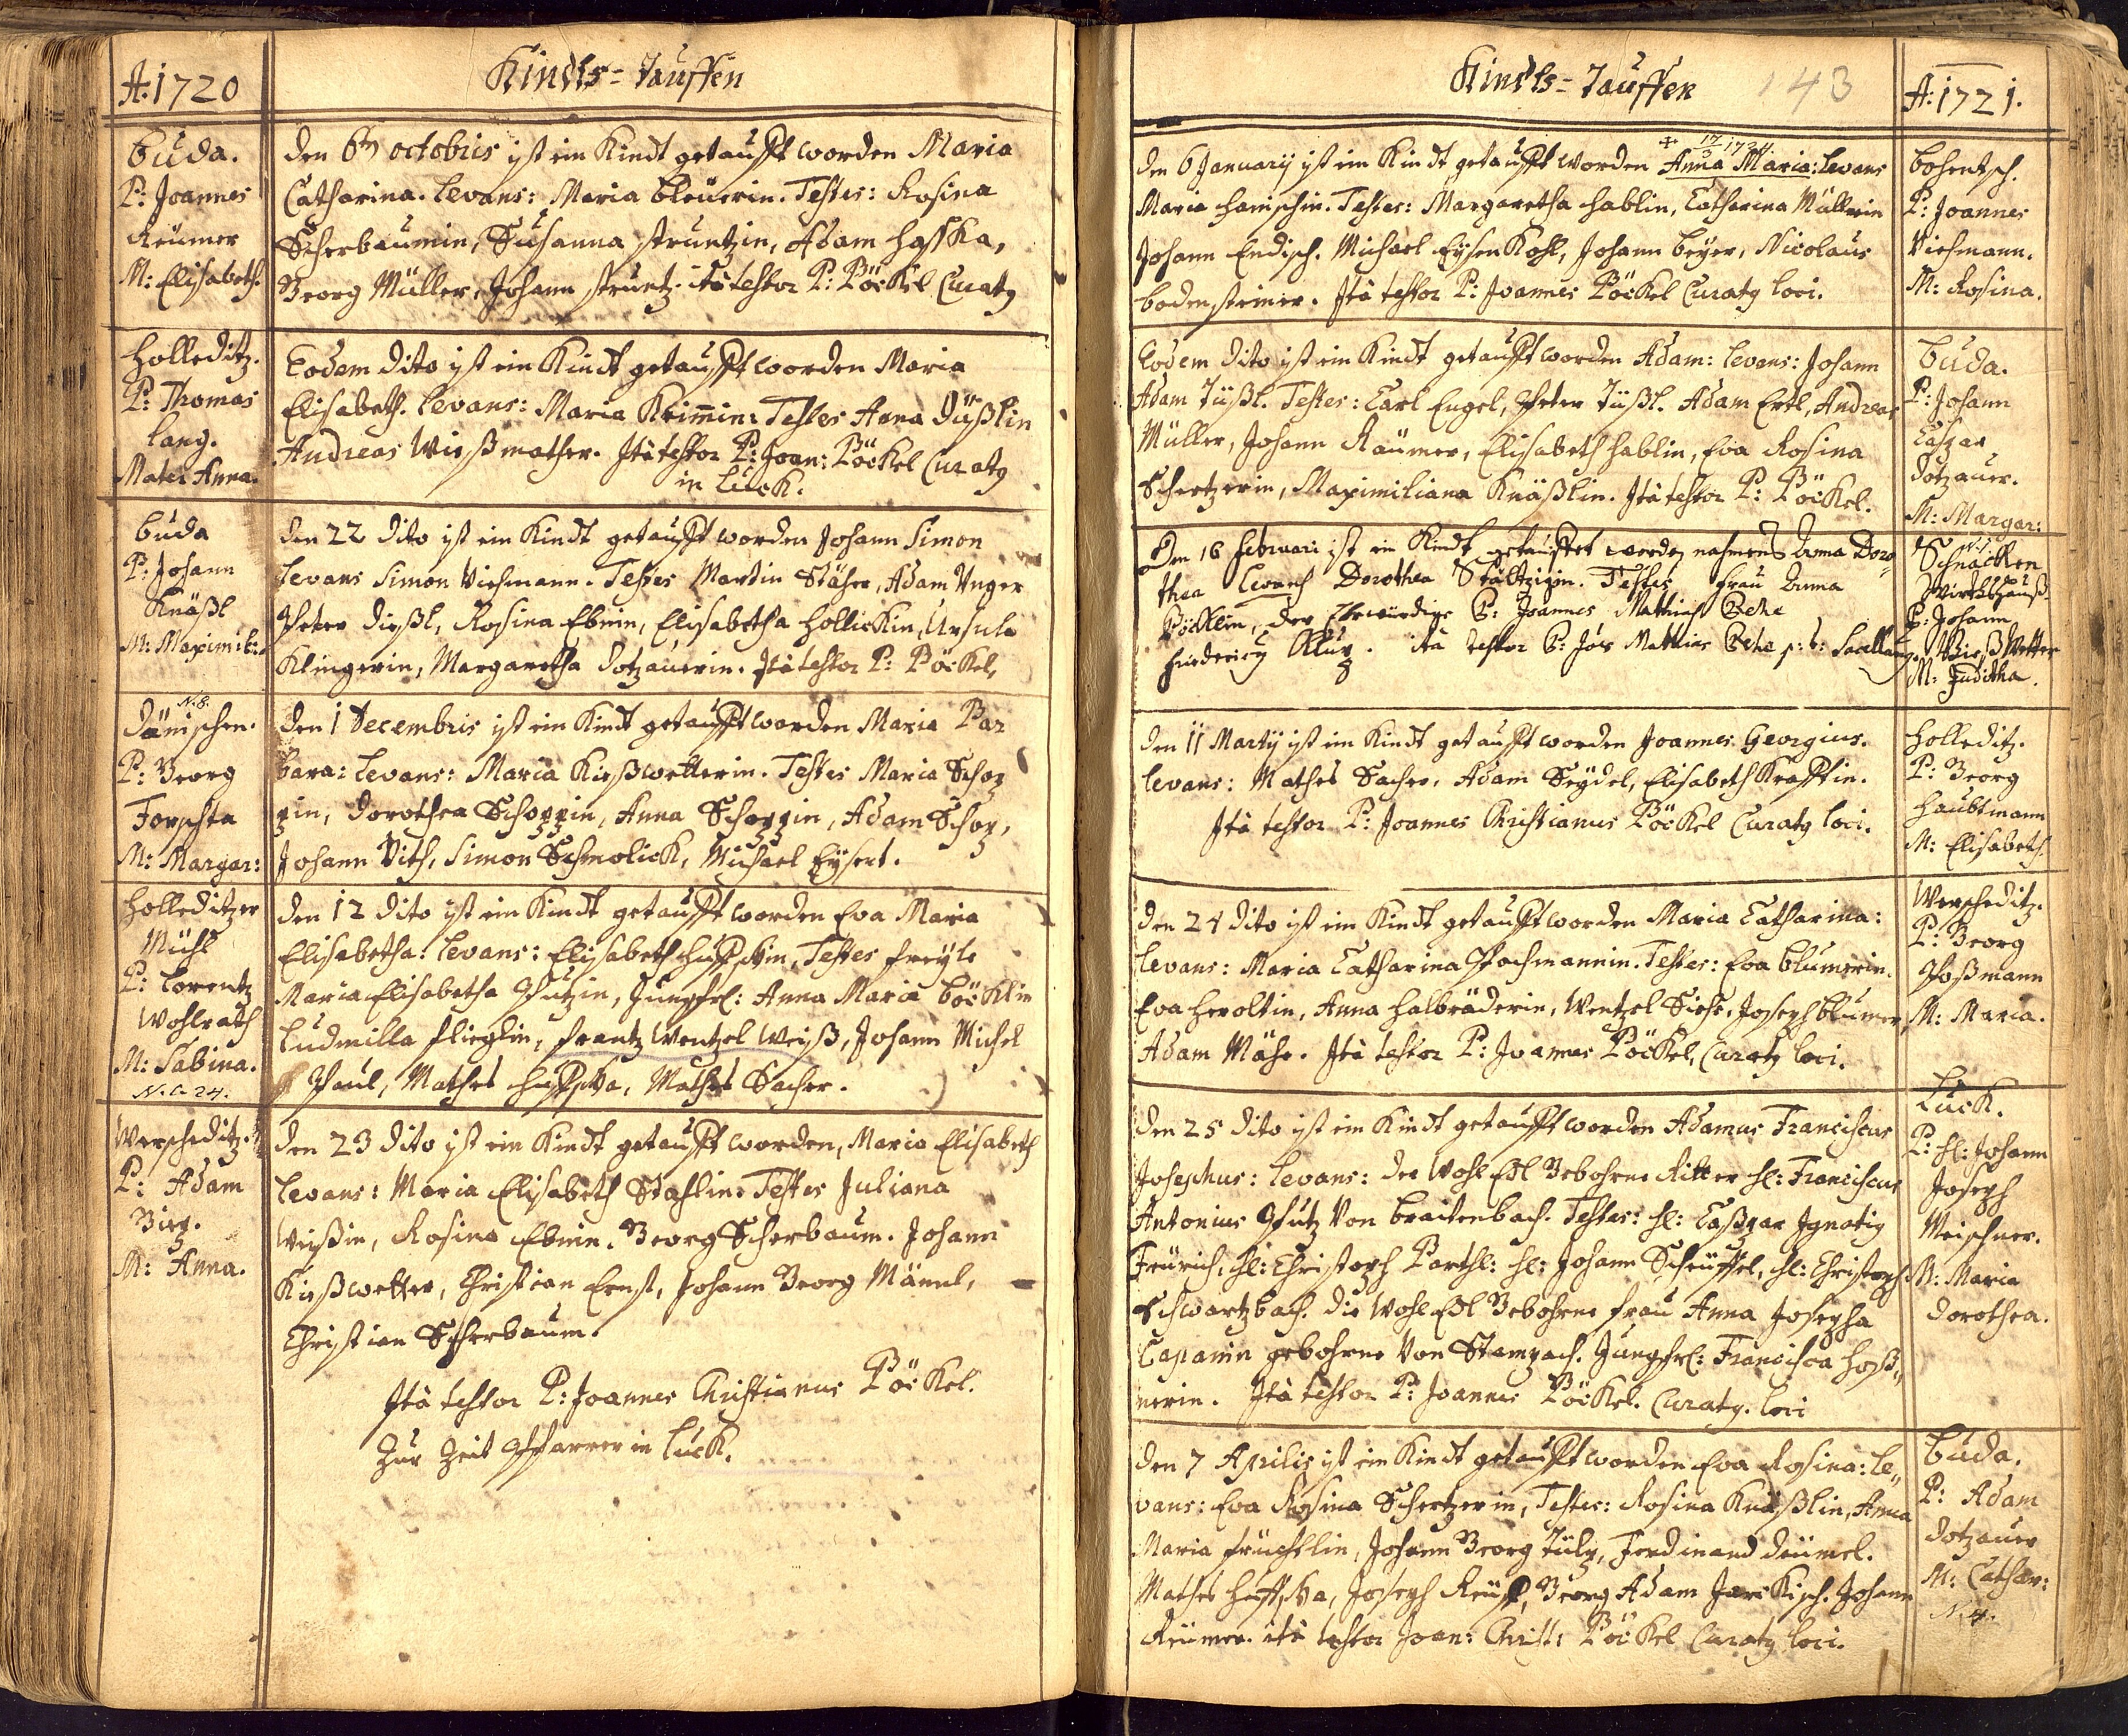 A: 1720
Kindts=Tauffen
Buda.
P: Joannes
Reümer
M: Elisabeth.
den 6ten octobris ist ein Kindt getaufft worden Maria
Catharina. Levans: Maria Bleüerin. Testes: Rosina
Scherbaumin, Susanna Struntzin, Adam Hasska,
Georg Müller, Johann Struntz. ita testor P: Pöckel Curatq
Holleditz.
P: Thomas
Lang.
Mater Anna.
Eodem dito ist ein Kindt getaufft worden Maria
Elisabeth. Levans: Maria Krimin: Testes Anna Düßlin
Andreas Wiesmather. Ità testor P: Joan: Pöckel Curatq
in Luck.
Buda
P: Johann
Knäßl
M: Maximil:
den 22 dito ist ein Kindt getaufft worden Johann Simon
Levans Simon Viehmann. Testes Martin Stähr, Adam Unger
Peter Dießl, Rosina Ebnin, Elisabetha Hollickin, Ursula
Klingerin, Margaretha Dotzauerin. Ità testor P: Pöckel,
N. 8.
Dänischen.
P: Georg
Forschta
M: Margar:
den 1 Decembris ist ein Kindt getaufft worden Maria Bar
bara: Levans: Maria Kießwetterin. Testes Maria Schop
pin, Dorothea Schoppin, Anna Schoppin, Adam Schop,
Johann Vith, Simon Schmolick, Michael Eysert.
Holleditzer
Mühl
P: Lorentz
Wohlrath
M: Sabina.
N. C. 24.
den 12 dito ist ein Kindt getaufft worden Eva Maria
Elisabetha: Levans: Elisabeth Testes Freyle
Maria Elisabetha Putzin, Jungfrl: Anna Maria Böcklin
Ludmilla Flieglin, Frantz Wentzel Weyß, Johann Michel
Paul, Mathes Mathes Sacher.
Werscheditz.
P: Adam
M: Anna.
den 23 dito ist ein Kindt getaufft worden, Maria Elisabeth
Levans: Maria Elisabeth Stahlin: Testes Juliana
Weißin, Rosina Ebnin. Georg Scherbaum. Johann
Kießwetter, Christian Ernst, Johann Georg Männl,
Christian Scherbaum.
Ità testor P: Joannes Christianus Pöckel.
Zur Zeit Pfarrer in Luck.
Kindts=Tauffen 143
A: 1721.
Bohentsch.
P: Joannes
Viehmann.
M: Rosina.
1724.
den 6 January ist ein Kindt getaufft worden Anna Maria: Levans
Maria Hanischin. Testes: Margaretha Hablin, Catharina Müllerin
Johann Endisch. Michael Eysenkohl, Johann Beyer, Nicolaus
Bodensteiner. Ità testor P: Joannes Pöckel Curatq loci.
Buda.
P: Johann
Caspar
Dotzauer.
M: Margar:
Eodem dito ist ein Kindt getaufft worden Adam: Levans: Johann
Adam Tüßl. Testes: Carl Engel, Peter Tüßl. Adam Ertl, Andreas
Müller, Johann Räumer, Elisabeth Hablin, Eva Rosina
Schertzerin, Maximiliana Knäßlin. Ità testor P: Pöckel.
Schnäcken
Wirtshauß
P: Johann
Kießwetter
M: Juditha.
Den 16 Februari ist ein Kindt getauffet worden nahmens Anna Doro=
thea Levans Dorothea Testes Frau Anna
Pöcklin, der Ehrwürdige P: Joannes Mathias Behe
Fridericq Klug. ita testor P: Jois Mathias Behe p: t: Sacellanq.
Holleditz.
P: Georg
Haubtmann
M: Elisabeth.
den 11 Marty ist ein Kindt getaufft worden Joannes Georgius.
Levans: Mathes Sacher. Adam Seydel, Elisabeth Krafftin.
Ità testor P: Joannes Christianus Pöckel Curatq loci.
Werscheditz.
P: Georg
Poßmann
M: Maria.
den 24 dito ist ein Kindt getaufft worden Maria Catharina:
Levans: Maria Catharina Pachmannin. Testes: Eva Blumerin.
Eva Heroltin, Anna Halbräderin, Wentzel Joseph Blumer,
Adam Mähr. Ità testor P: Joannes Pöckel, Curatq loci.
Luck.
P: H: Johann
Joseph
Meischner.
M: Maria
Dorothea.
den 25 dito ist ein Kindt getaufft worden Adamus Franciscus
Josephus: Levans: der Wohl Edl Gebohrne Ritter H: Franciscus
Antonius Putz von Breitenbach. Testes: H: Caspar Ignatiq
H: Christoph Barthl: H: Johann Scheüffel, H: Christoph
Schwartzbach. die Wohl Edl Gebohrne Frau Anna Josepha
Capanin gebohrne von Stampach. Jungfrl: Francisca Hoß=
nerin. Ità testor P: Joannes Pöckel. Curatq. loci
Buda.
P: Adam
Dotzauer
M: Cathar:
N. 4.
den 7 Aprilis ist ein Kindt getaufft worden Eva Rosina: Le=
vans: Eva Rosina Schertzerin, Testes: Rosina Knäßlin, Anna
Maria Früchtlin, Johann Georg Ferdinand Deümel.
Mathes Joseph Georg Adam Jareckisch. Johann
Reümer. ità testor Joan: Christ: Pöckel Curatq loci.